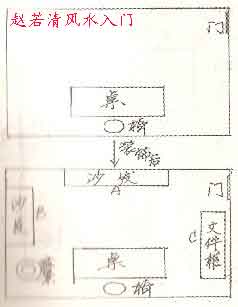 赵若清风水入门
门
桌
椅
装饰后
沙发
A
门
沙发
B
C
文件柜
桌
椅